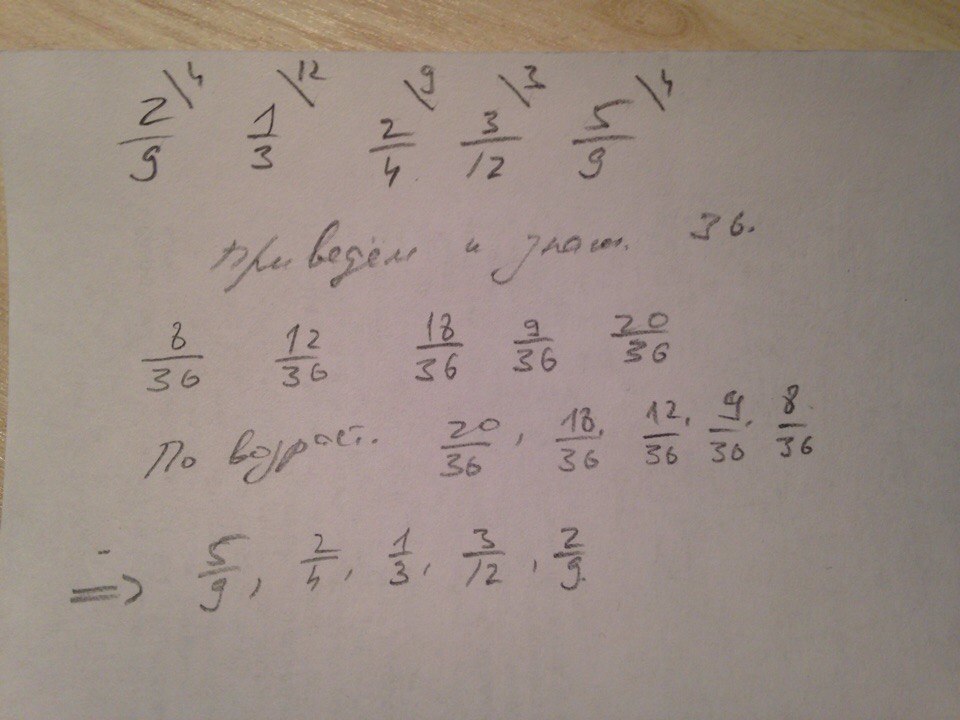 2/9\4 1/3\12 2/4\9 3/12\3 5/9\4
Приведём к знам. 36.
8/36 12/36 18/36 9/36 20/36
По возраст. 20/36, 18/36, 12/36, 9/36, 8/36
=> 5/9, 2/4, 1/3, 3/12, 2/9